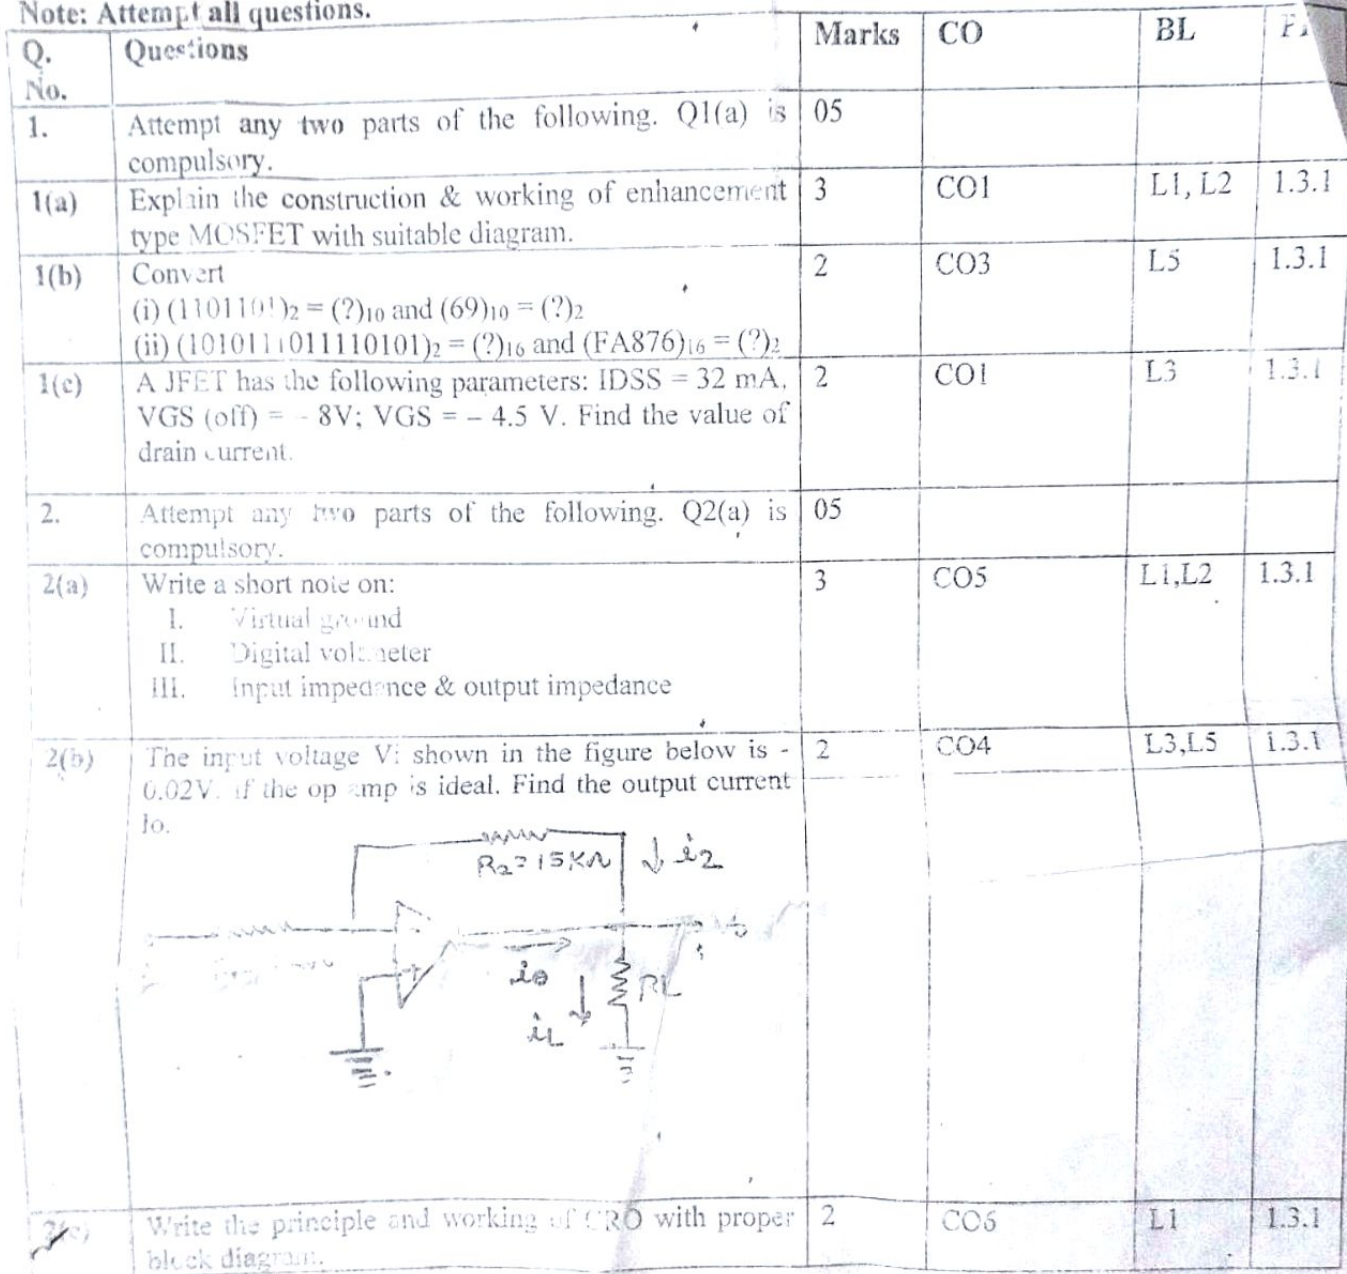 Note: Attempt all questions.
Q. No. Questions Marks CO BL
1. Attempt any two parts of the following. Q1(a) is 05
compulsory.
1(a) Explain the construction & working of enhancement 3 CO1 L1, L2 1.3.1
type MOSFET with suitable diagram.
1(b) Convert 2 CO3 L5 1.3.1
(i) (1101101)2 = (?)10 and (69)10 = (?)2
(ii) (1010111011110101)2 = (?)16 and (FA876)16 = (?)2
1(c) A JFET has the following parameters: IDSS = 32 mA, 2 CO1 L3 1.3.1
VGS (off) = - 8V; VGS = – 4.5 V. Find the value of
drain current.
2. Attempt any two parts of the following. Q2(a) is 05
compulsory.
2(a) Write a short note on: 3 CO5 L1,L2 1.3.1
I. Virtual ground
II. Digital voltmeter
III. Input impedance & output impedance
2(b) The input voltage Vi shown in the figure below is - 2 CO4 L3,L5 1.3.1
0.02V. if the op amp is ideal. Find the output current
Io.
R2=15KΩ i2
+
io RL
iL
2(c) Write the principle and working of CRO with proper 2 CO6 L1 1.3.1
block diagram.